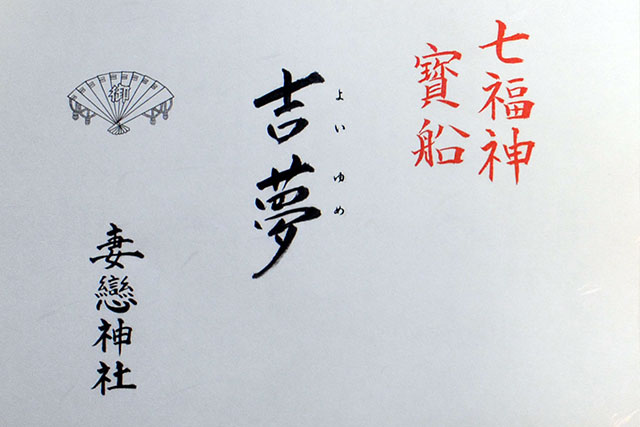 七福神
寶船
吉夢
よいゆめ
御
妻戀神社